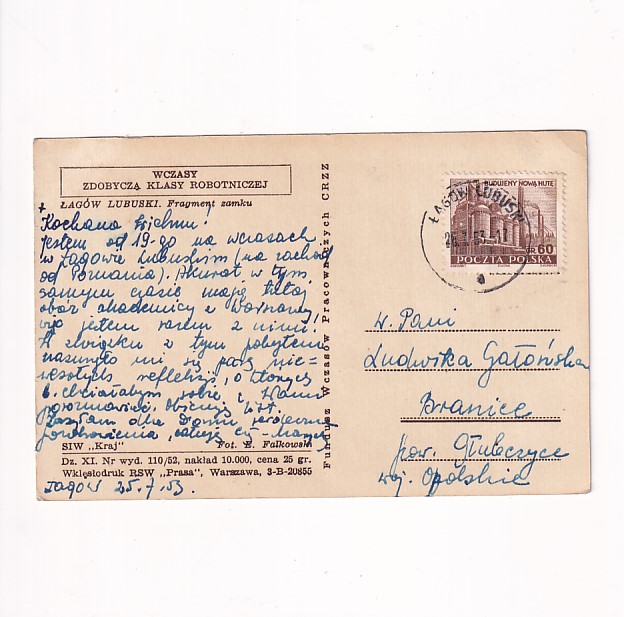 WCZASY
ZDOBYCZĄ KLASY ROBOTNICZEJ
ŁAGÓW LUBUSKI. Fragment zamku
+
Kochana
jestem od 19-go na wczasach
w Łagowie Lubuskim (na zachód
od Poznania). Akurat w tym
samym czasie mają tutaj
obóz akademicy z Warszawy
więc jestem razem z nimi!
W związku z tym pobytem
nasunęło mi się parę nie=
wesołych refleksji, o których
b. chciałabym sobie z Wami
porozmawiać.
Zasyłam dla Domu serdeczne
pozdrowienia całuję Cię
SIW „Kraj" Fot. E. Falkowski
Dz. XI. Nr wyd. 110/52, nakład 10.000, cena 25 gr.
Wklęsłodruk RSW „Prasa", Warszawa, 3-B-20855
Łagów 25.7.53.
Fundusz Wczasów Pracowniczych CRZZ
BUDUJEMY NOWĄ HUTĘ
GR 60
POCZTA POLSKA
ŁAGÓW LUBUSKI
a
W. Pani
Ludwika Gatońska
Branice
pow. Głubczyce
woj. Opolskie